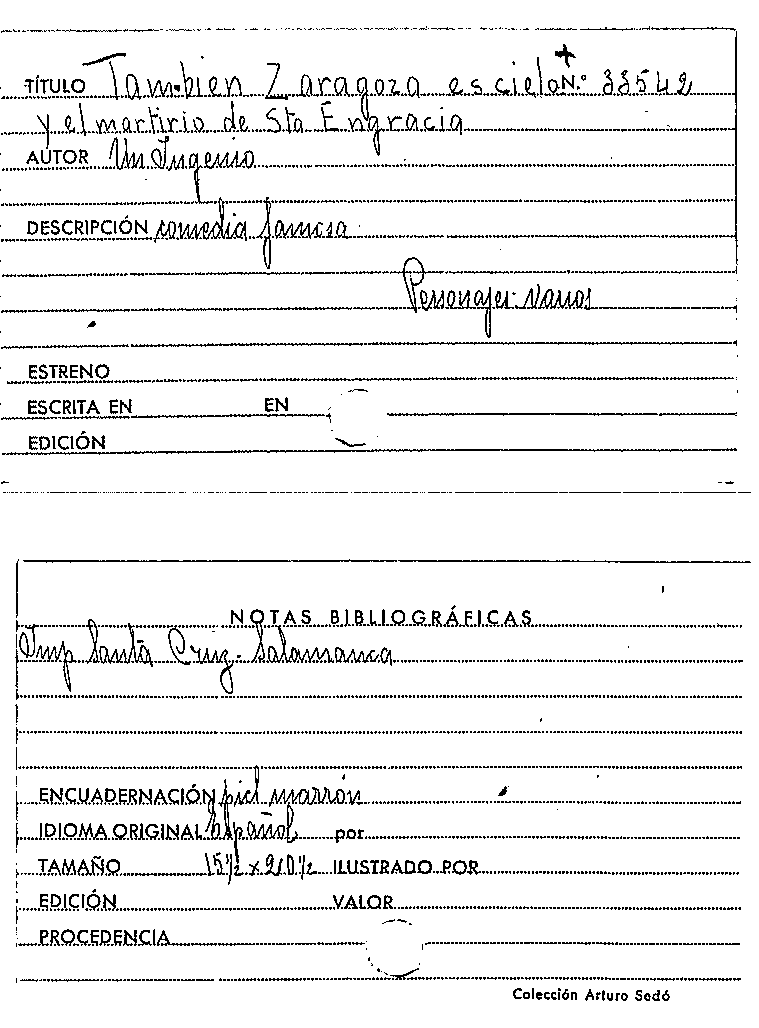 TÍTULO Tambien Zaragoza es cielo N.º 33542
y el martirio de Sta Engracia
AUTOR Un Ingenio
DESCRIPCIÓN comedia famosa
Personajes: varios
ESTRENO
ESCRITA EN EN
EDICIÓN
NOTAS BIBLIOGRÁFICAS
Imp Santa Cruz - Salamanca
ENCUADERNACIÓN piel marrón
IDIOMA ORIGINAL Español por
TAMAÑO 15½ x 20½ ILUSTRADO POR
EDICIÓN VALOR
PROCEDENCIA
Colección Arturo Sedó